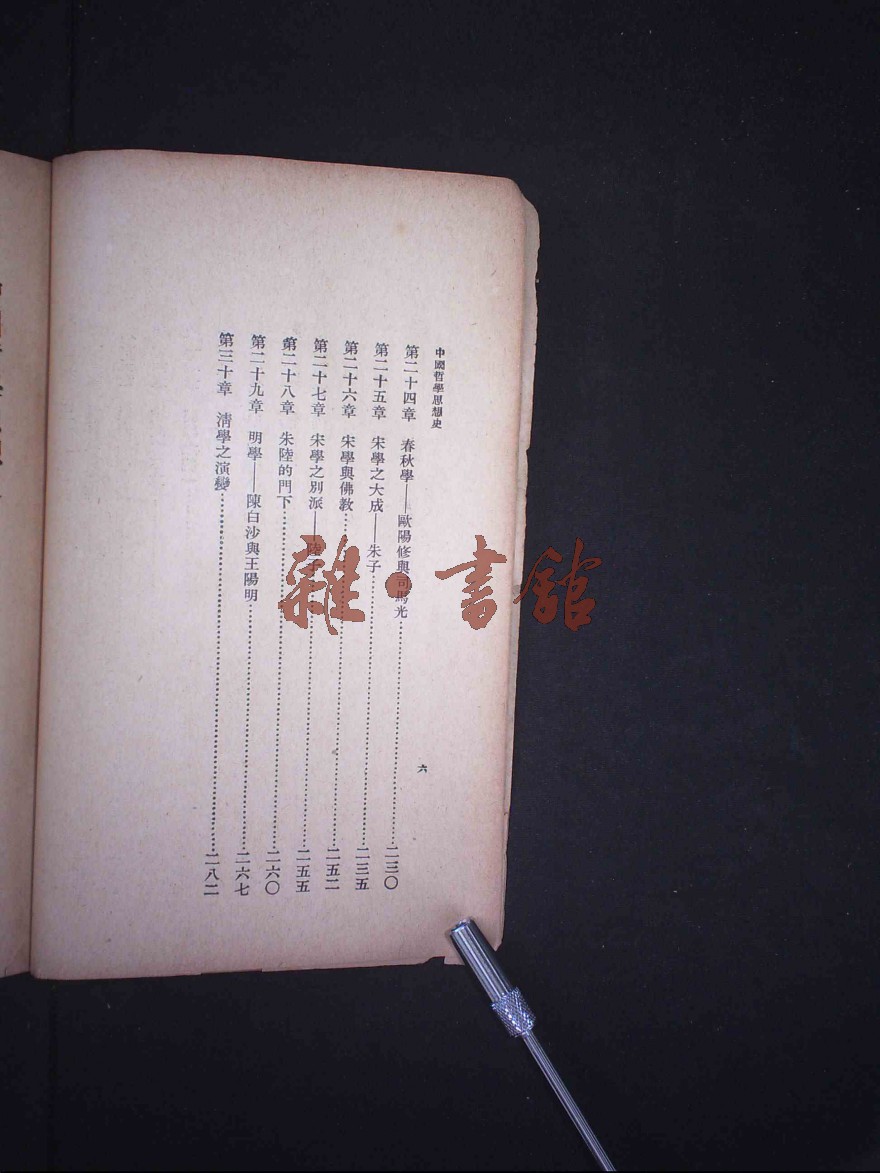 中國哲學思想史
第二十四章 春秋學——歐陽修與司馬光…………二三〇
第二十五章 宋學之大成——朱子…………二三五
第二十六章 宋學與佛教…………二五二
第二十七章 宋學之別派——陸子…………二五五
第二十八章 朱陸的門下…………二六〇
第二十九章 明學——陳白沙與王陽明…………二六七
第三十章 清學之演變…………二八二
六
雜·書館